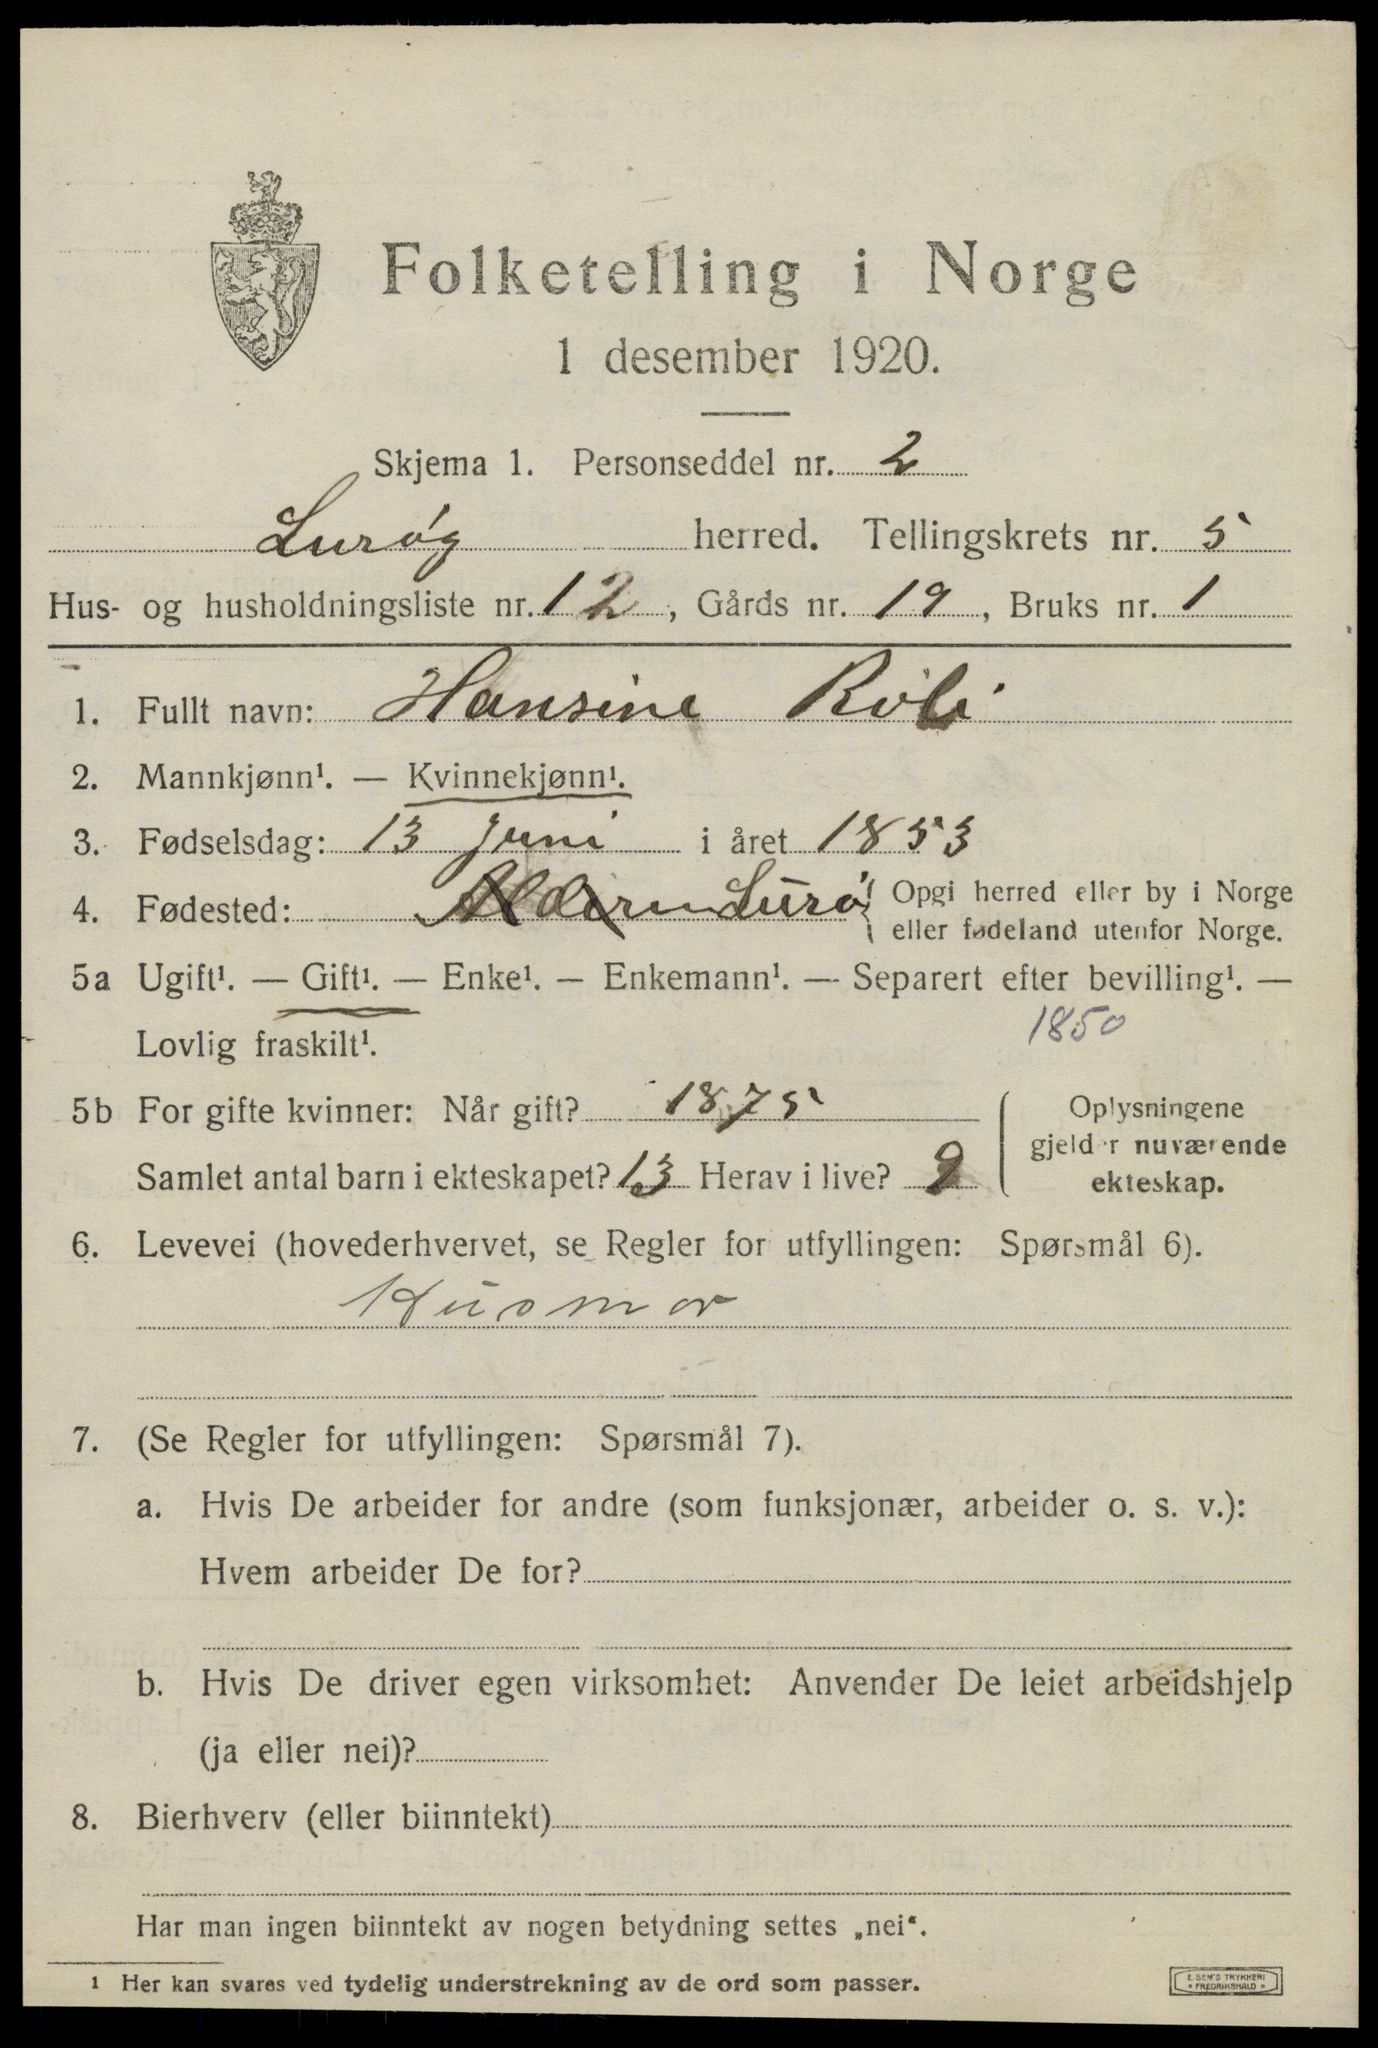 Folketelling i Norge
1 desember 1920.
Skjema 1. Personseddel nr. 2
Lurøy herred. Tellingskrets nr. 5
Hus- og husholdningsliste nr. 12, Gårds nr. 19, Bruks nr. 1
1. Fullt navn: Hansine
2. Mannkjønn¹. — Kvinnekjønn¹.
3. Fødselsdag: 13 juni i året 1853
4. Fødested: Lurø { Opgi herred eller by i Norge
eller fødeland utenfor Norge.
5a Ugift¹. — Gift¹. — Enke¹. — Enkemann¹. — Separert efter bevilling¹. —
Lovlig fraskilt¹. 1850
5b For gifte kvinner: Når gift? 1875
Samlet antal barn i ekteskapet? 13 Herav i live? 9
Oplysningene
gjelder nuværende
ekteskap.
6. Levevei (hovederhvervet, se Regler for utfyllingen: Spørsmål 6).
Husmor
7. (Se Regler for utfyllingen: Spørsmål 7).
a. Hvis De arbeider for andre (som funksjonær, arbeider o. s. v.):
Hvem arbeider De for?
b. Hvis De driver egen virksomhet: Anvender De leiet arbeidshjelp
(ja eller nei)?
8. Bierhverv (eller biinntekt)
Har man ingen biinntekt av nogen betydning settes „nei“.
1 Her kan svares ved tydelig understrekning av de ord som passer.
E. SEM'S TRYKKERI
« FREDRIKSHALD »